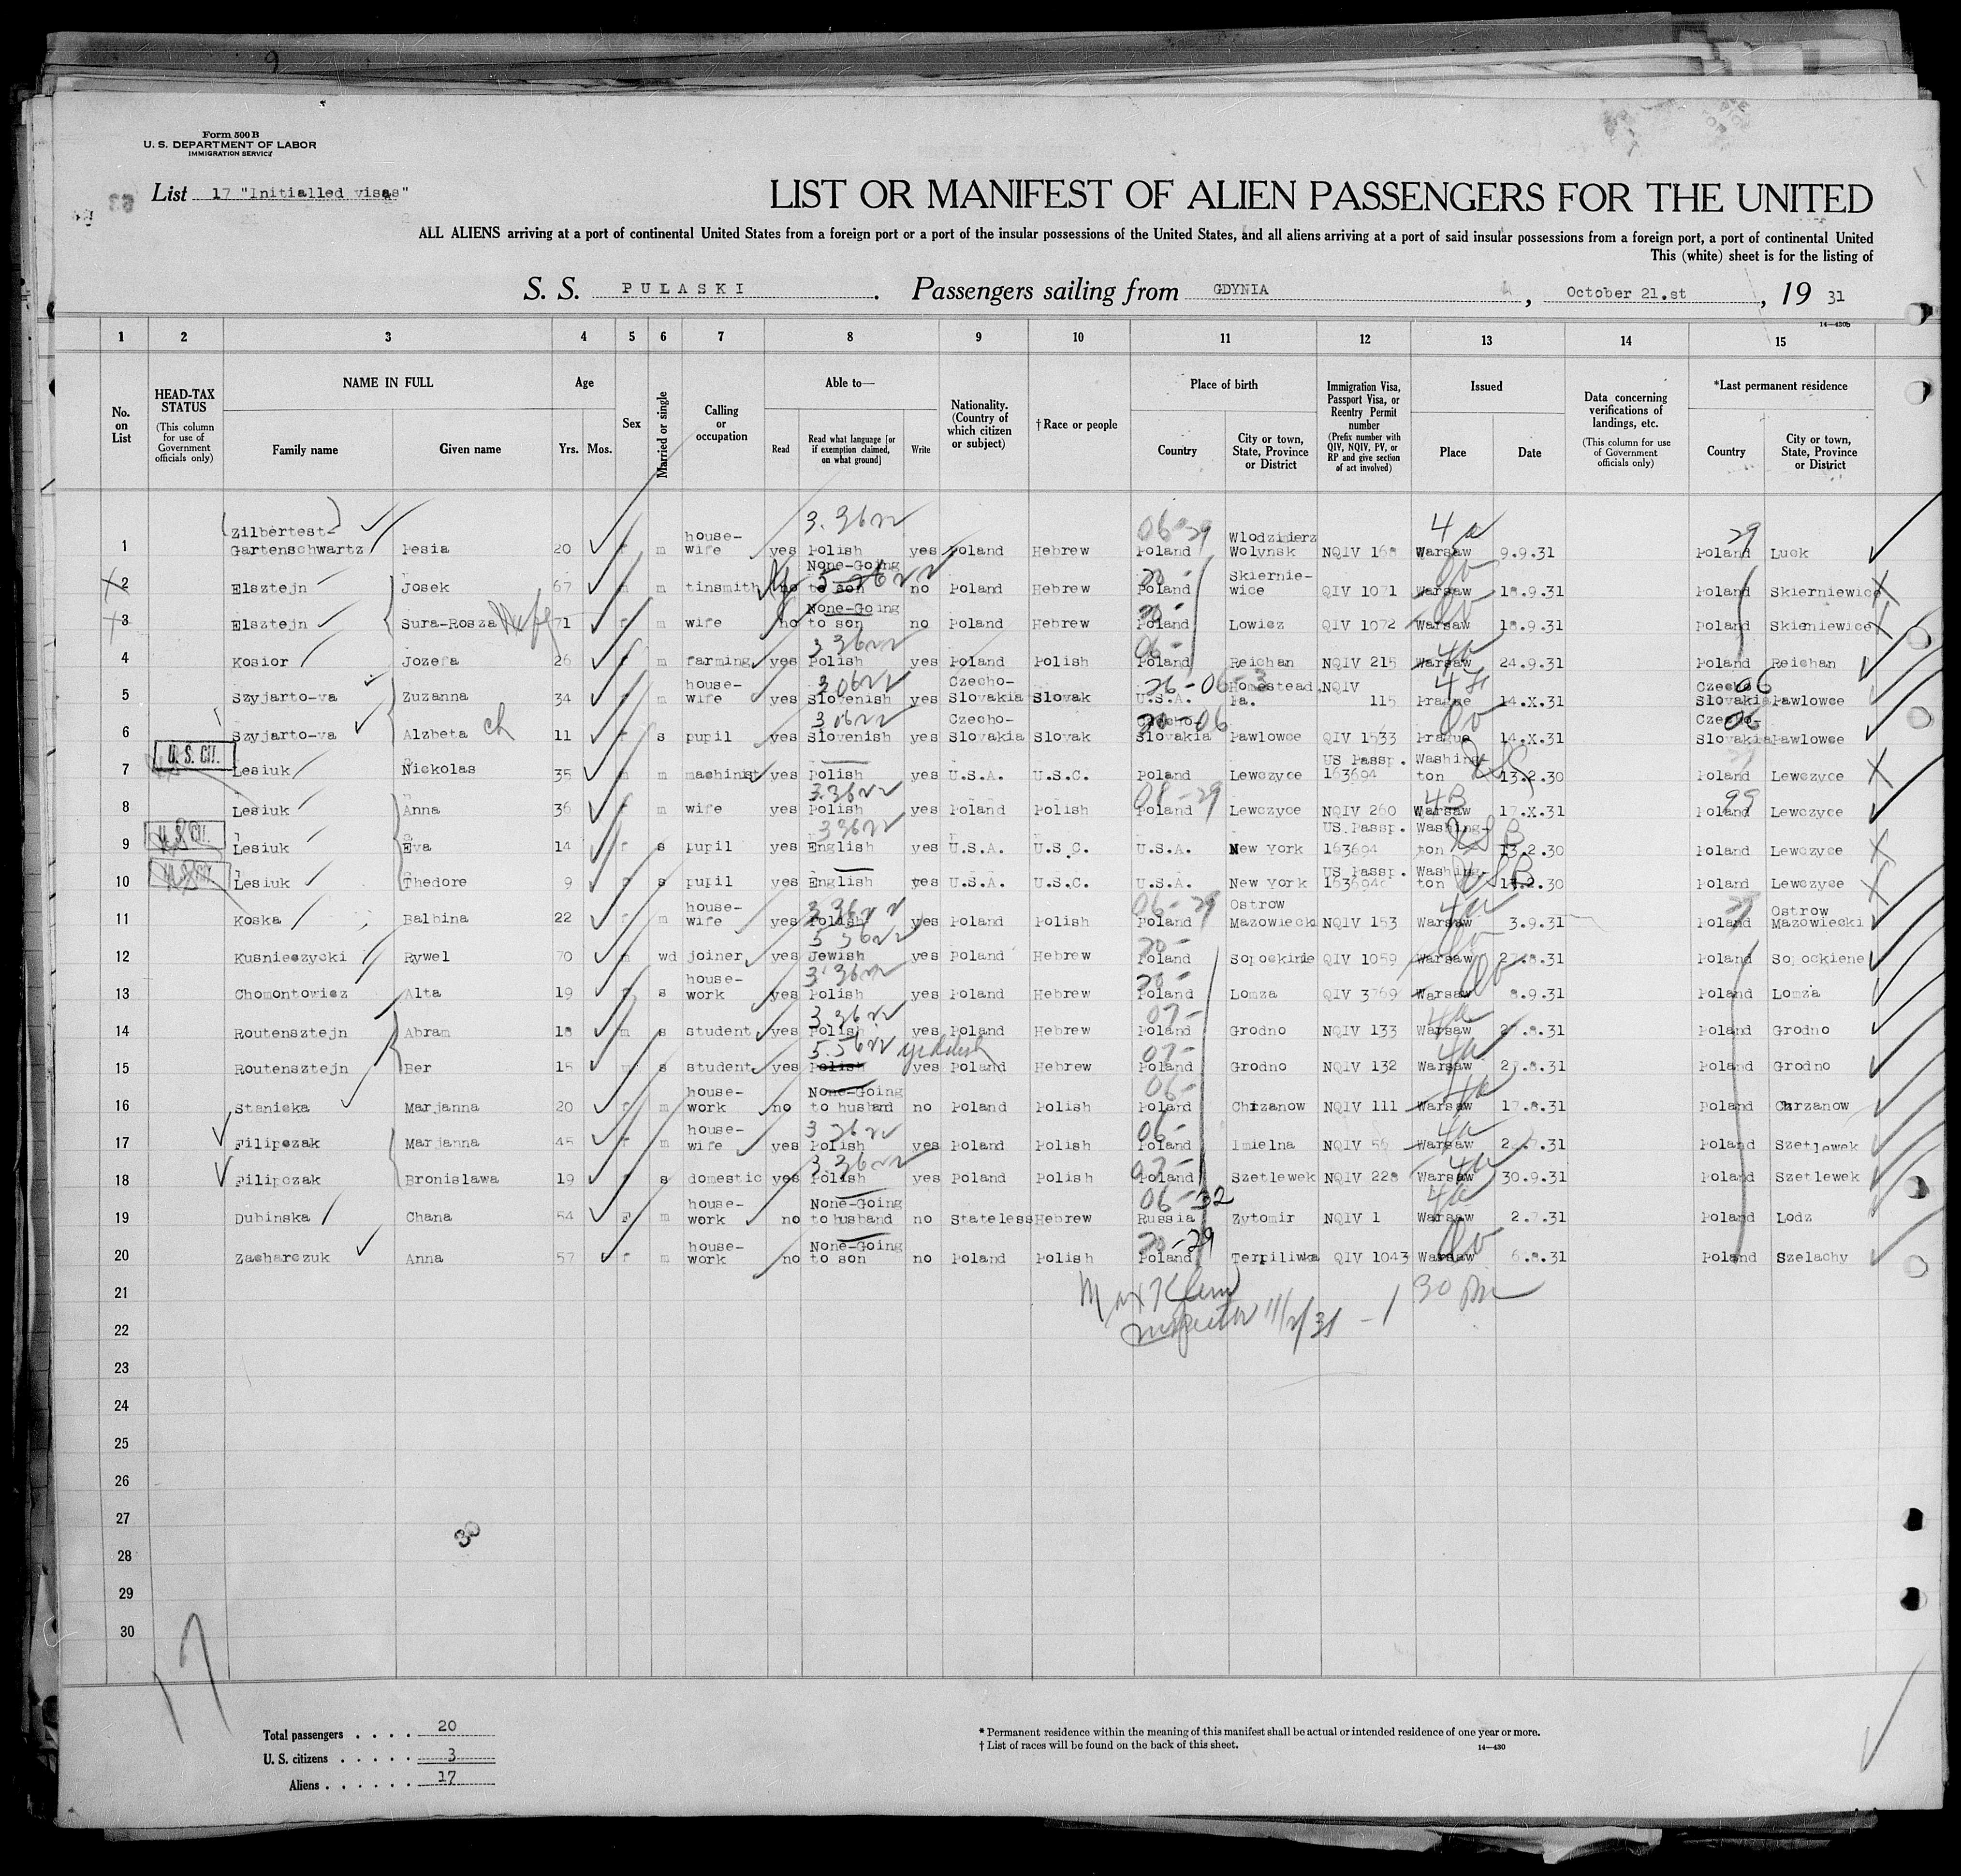 Form 500 B
U. S. DEPARTMENT OF LABOR
IMMIGRATION SERVICE
List 17 "Initialled visas"
LIST OR MANIFEST OF ALIEN PASSENGERS FOR THE UNITED
ALL ALIENS arriving at a port of continental United States from a foreign port or a port of the insular possessions of the United States, and all aliens arriving at a port of said insular possessions from a foreign port, a port of continental United
This (white) sheet is for the listing of
S. S. PULASKI . Passengers sailing from GDYNIA , October 21.st , 19 31
14—430b
1 2 3 4 5 6 7 8 9 10 11 12 13 14 15
No. on List
HEAD-TAX STATUS (This column for use of Government officials only)
NAME IN FULL Family name Given name
Age Yrs. Mos.
Sex
Married or single
Calling or occupation
Able to— Read Read what language [or if exemption claimed, on what ground] Write
Nationality. (Country of which citizen or subject)
† Race or people
Place of birth Country City or town, State, Province or District
Immigration Visa, Passport Visa, or Reentry Permit number (Prefix number with QIV, NQIV, PV, or RP and give section of act involved)
Issued Place Date
Data concerning verifications of landings, etc. (This column for use of Government officials only)
*Last permanent residence Country City or town, State, Province or District
1 Zilbertest- Gartenschwartz Pesia 20 f m house-wife yes Polish yes Poland Hebrew Poland Wlodzimierz Wolynsk NQIV 168 Warsaw 9.9.31 Poland Luck
2 Elsztejn Josek 67 m m tinsmith no None-Going to son no Poland Hebrew Poland Skiernie-wice QIV 1071 Warsaw 18.9.31 Poland Skierniewice
3 Elsztejn Sura-Rosza 71 f m wife no None-Going to son no Poland Hebrew Poland Lowicz QIV 1072 Warsaw 18.9.31 Poland Skierniewice
4 Kosior Jozefa 26 f m farming yes Polish yes Poland Polish Poland Reichan NQIV 215 Warsaw 24.9.31 Poland Reichan
5 Szyjarto-va Zuzanna 34 f m house-wife yes Slovenish yes Czecho-Slovakia Slovak U.S.A. Homestead, Pa. NQIV 115 Prague 14.X.31 Czecho Slovakia Pawlowce
6 Szyjarto-va Alzbeta ch 11 f s pupil yes Slovenish yes Czecho-Slovakia Slovak Czecho-Slovakia Pawlowce QIV 1533 Prague 14.X.31 Czecho-Slovakia Pawlowce
7 U. S. CIT. Lesiuk Nickolas 35 m m machinist yes Polish yes U.S.A. U.S.C. Poland Lewczyce US Passp. 163694 Washing-ton 13.2.30 Poland Lewczyce
8 Lesiuk Anna 36 f m wife yes Polish yes Poland Polish Poland Lewczyce NQIV 260 Warsaw 17.X.31 Poland Lewczyce
9 U. S. CIT. Lesiuk Eva 14 f s pupil yes English yes U.S.A. U.S.C. U.S.A. New York US.Passp. 163694 Washing-ton 13.2.30 Poland Lewczyce
10 U. S. CIT. Lesiuk Thedore 9 s pupil yes English yes U.S.A. U.S.C. U.S.A. New York US Passp. 163694 Washing-ton 13.2.30 Poland Lewczyce
11 Koska Balbina 22 f m house-wife yes Polish yes Poland Polish Poland Ostrow Mazowieck NQIV 153 Warsaw 3.9.31 Poland Ostrow Mazowiecki
12 Kusnieszycki Rywel 70 m wd joiner yes Jewish yes Poland Hebrew Poland Sopockinie QIV 1059 Warsaw 27.8.31 Poland Sopockiene
13 Chomontowicz Alta 19 f s house-work yes Polish yes Poland Hebrew Poland Lomza QIV 3769 Warsaw 8.9.31 Poland Lomza
14 Routensztejn Abram 18 m s student yes Polish yes Poland Hebrew Poland Grodno NQIV 133 Warsaw 27.8.31 Poland Grodno
15 Routensztejn Ber 15 m s student yes Polish yiddish yes Poland Hebrew Poland Grodno NQIV 132 Warsaw 27.8.31 Poland Grodno
16 Stanicka Marjanna 20 f m house-work no None-Going to husband no Poland Polish Poland Chrzanow NQIV 111 Warsaw 17.8.31 Poland Chrzanow
17 Filipczak Marjanna 45 f m house-wife yes Polish yes Poland Polish Poland Imielna NQIV 56 Warsaw Poland Szetlewek
18 Filipczak Bronislawa 19 f s domestic yes Polish yes Poland Polish Poland Szetlewek NQIV 228 Warsaw 30.9.31 Poland Szetlewek
19 Dubinska Chana 54 F m house-work no None-Going to husband no Stateless Hebrew Russia Zytomir NQIV 1 Warsaw 2.7.31 Poland Lodz
20 Zacharczuk Anna 57 f m house-work no None-Going to son no Poland Polish Poland Terpiliwka QIV 1043 Warsaw 6.8.31 Poland Szelachy
21 Max Klein 1 30 Pm
22 Inspector 11/2/31
23
24
25
26
27
28
29
30
30
17
Total passengers . . . . 20
U. S. citizens . . . . . 3
Aliens . . . . . . 17
* Permanent residence within the meaning of this manifest shall be actual or intended residence of one year or more.
† List of races will be found on the back of this sheet.
14—430